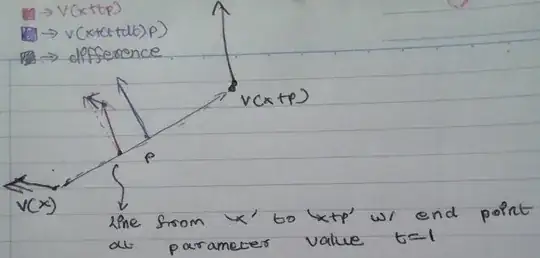 → V(x+tp)
→ V(x+(t+dt)p)
→ difference
V(x+p)
p
V(x)
line from 'x' to 'x+p' w/ end point
at parameter value t=1